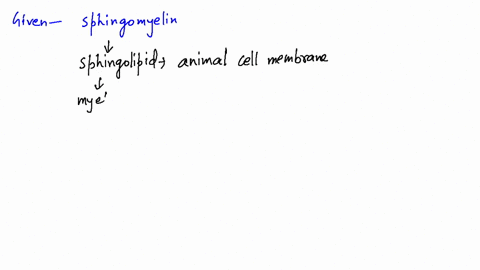 Given - sphingomyelin
↓
sphingolipid → animal cell membrane
↓
mye